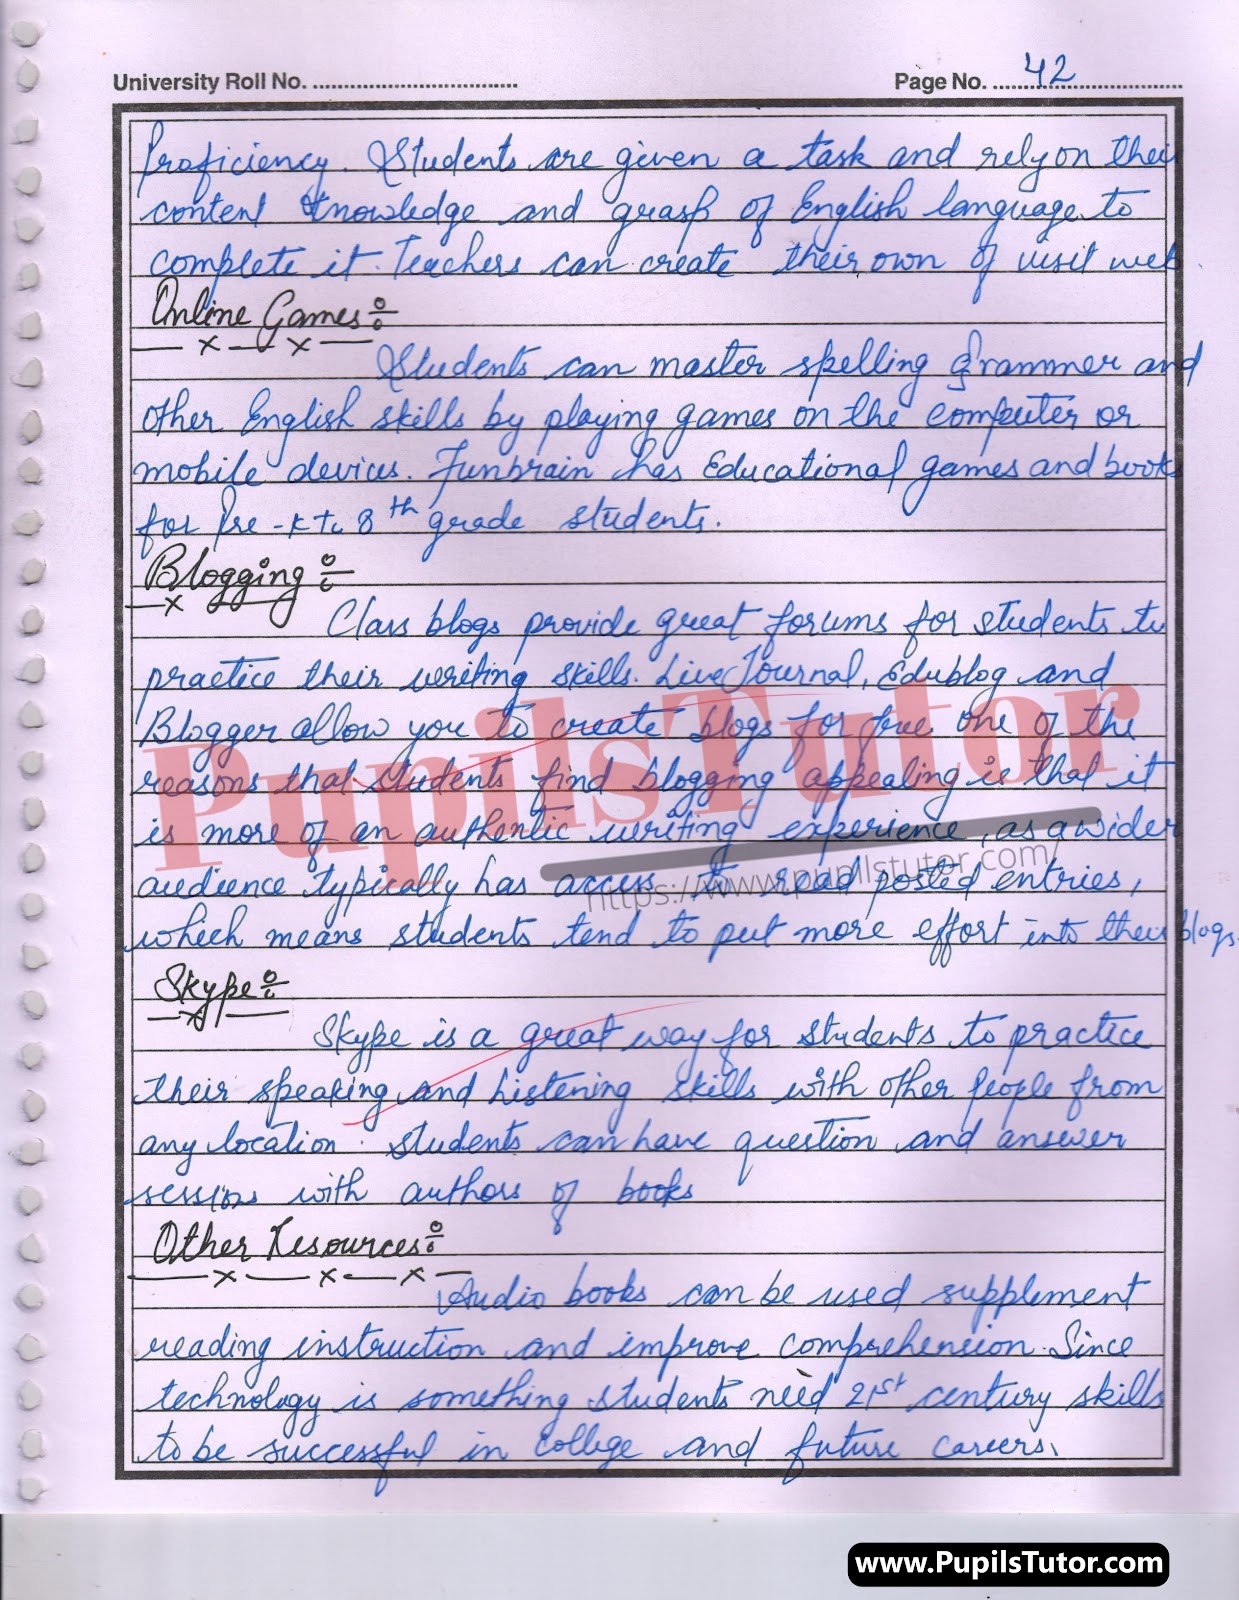 University Roll No. ................................. Page No. ....42....................
Proficiency. Students are given a task and rely on their
content knowledge and grasp of English language to
complete it. Teachers can create their own of visit web
Online Games÷
Students can master spelling Grammer and
other English skills by playing games on the computer or
mobile devices. Funbrain has Educational games and books
for Pre-K to 8th grade students.
Blogging÷
Class blogs provide great forums for students to
practice their writing skills. Live Journal, Edublog and
Blogger allow you to create blogs for free one of the
reasons that students find blogging appealing is that it
is more of an authentic writing experience, as a wider
audience typically has access to read posted entries,
which means students tend to put more effort into their blogs.
Skype÷
Skype is a great way for students to practice
their speaking and Listening skills with other people from
any location. Students can have question and answer
sessions with authors of books
Other Resources÷
Audio books can be used supplement
reading instruction and improve comprehension. Since
technology is something students need 21st century skills
to be successful in college and future careers.
PupilsTutor
https://www.pupilstutor.com/
www.PupilsTutor.com